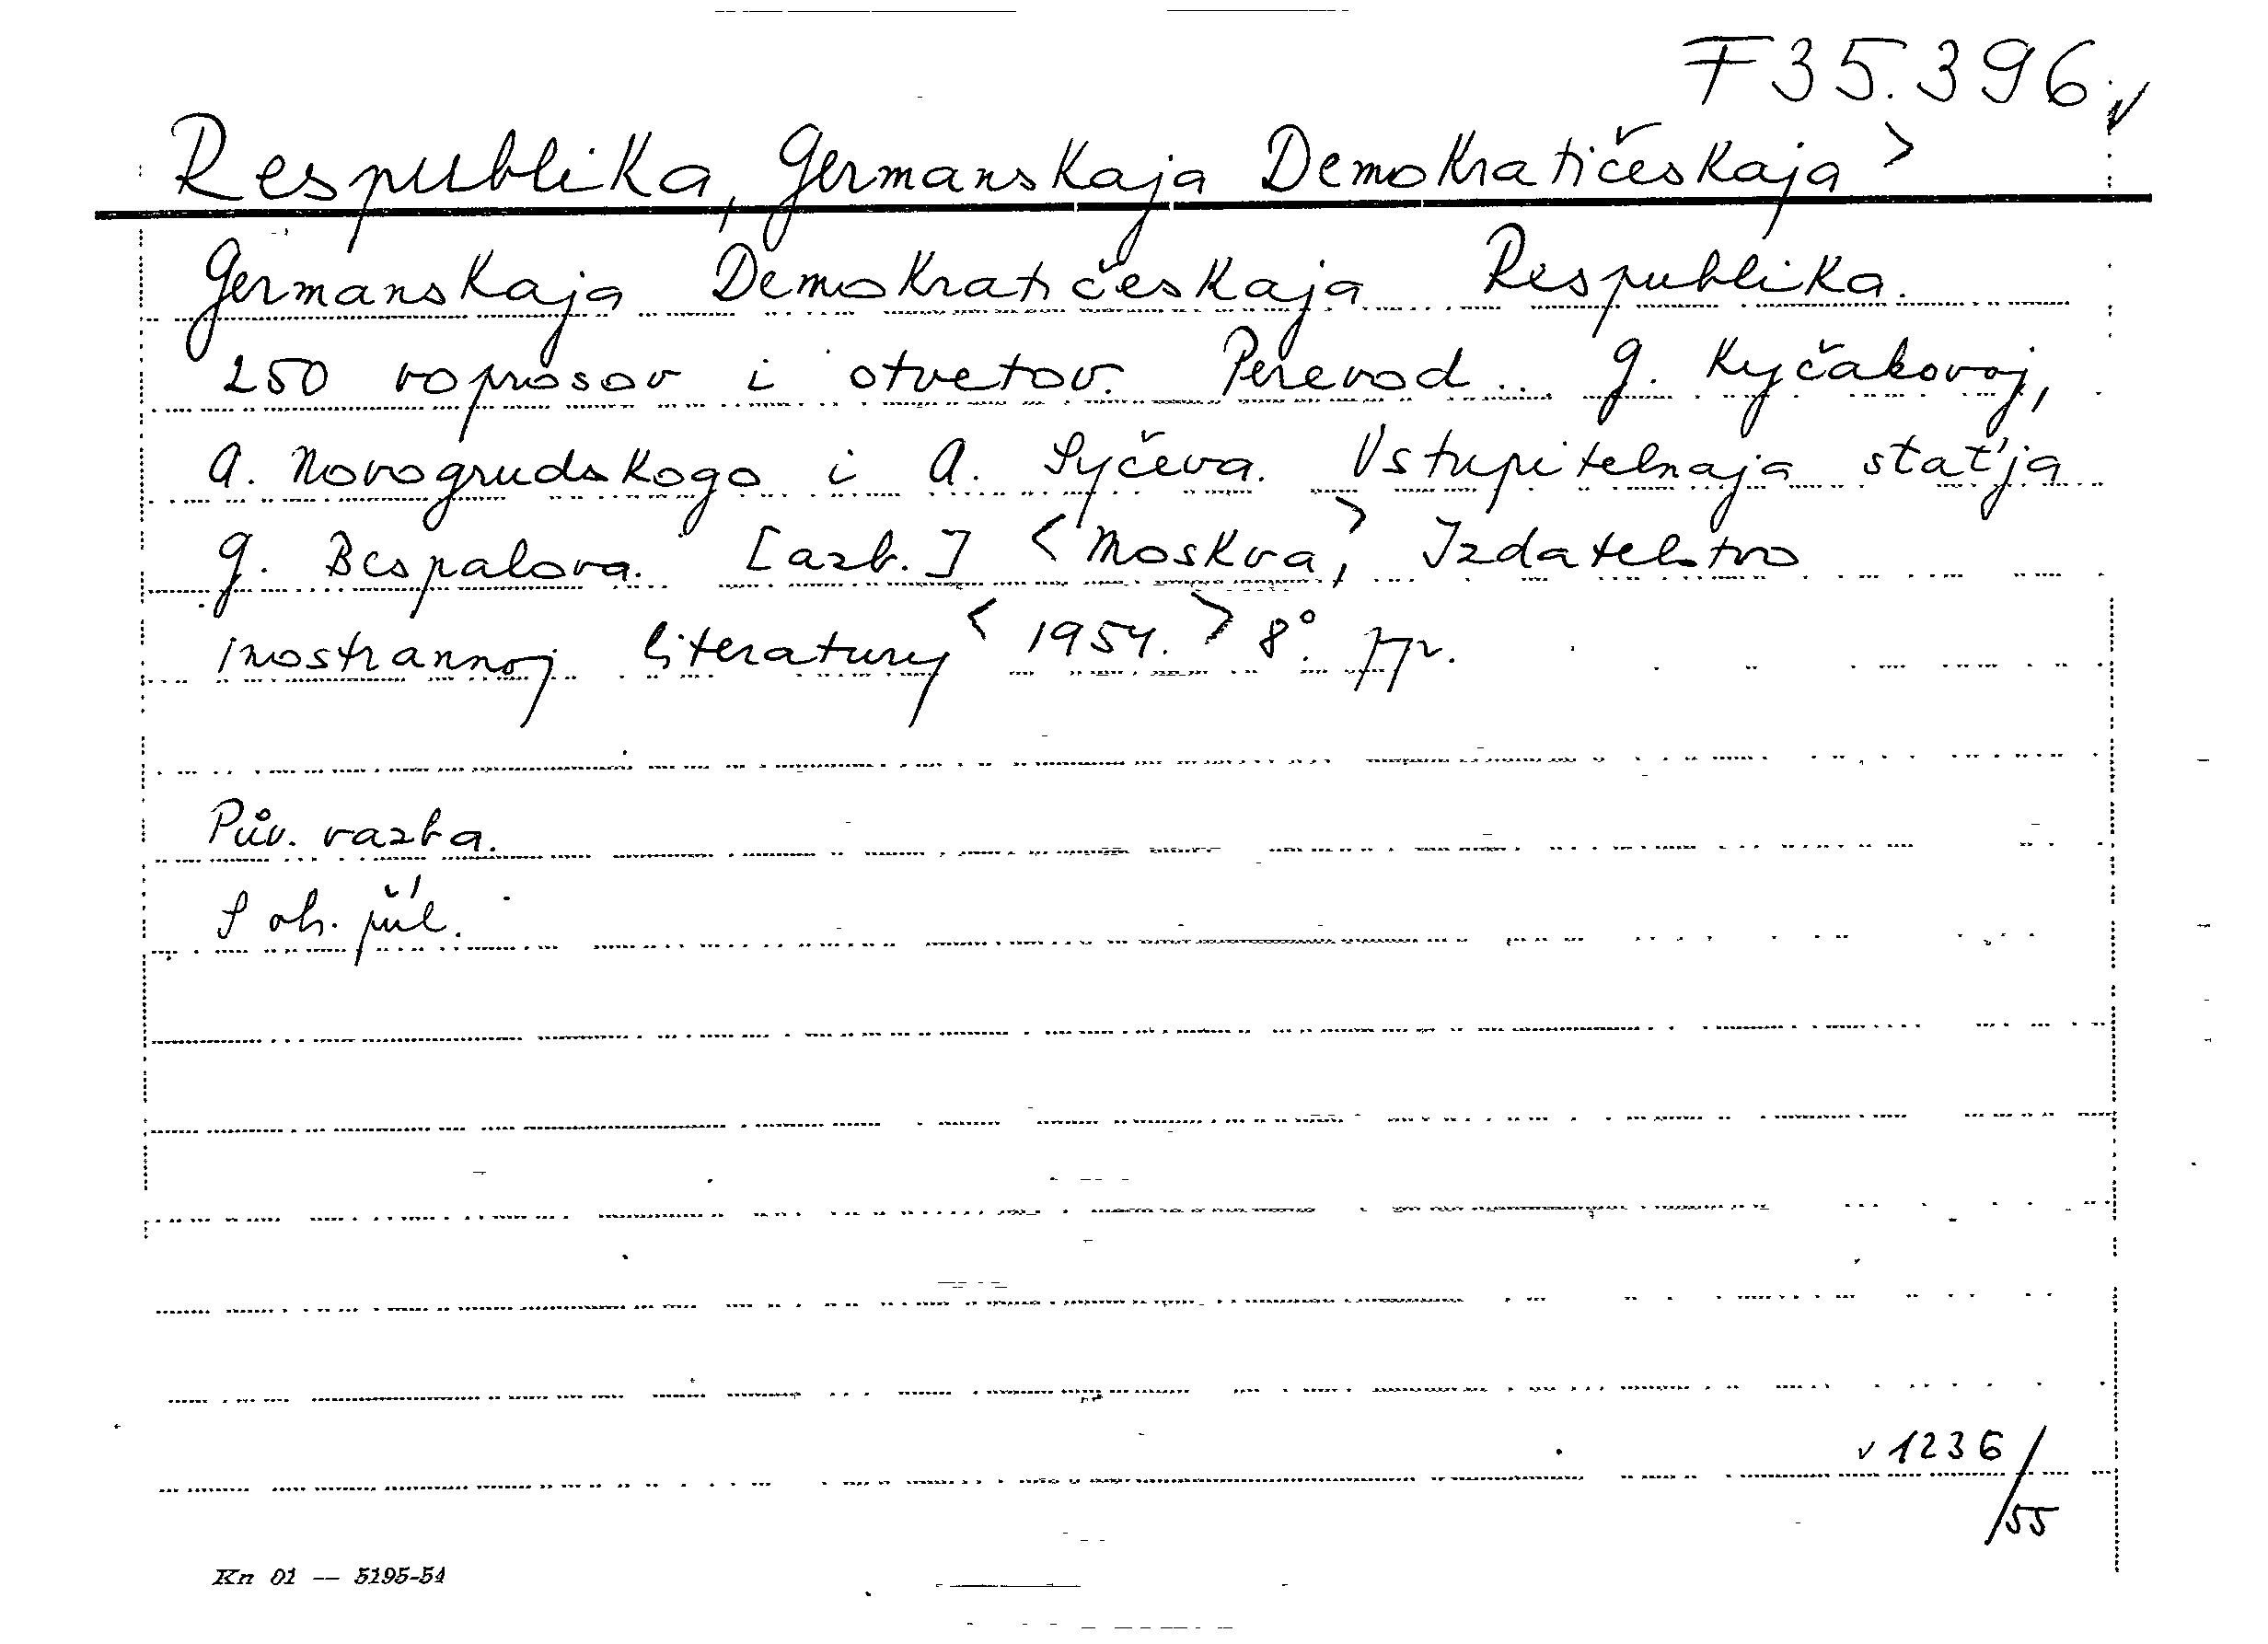 F 35.396.
Respublika, Germanskaja Demokratičeskaja >
Germanskaja Demokratičeskaja Respublika.
250 voprosov i otvetov. Perevod .. G. Kyčakovoj,
A. Novogrudskogo i A. Syčeva. Vstupitelnaja stat'ja
G. Bespalova. [azb.] < Moskva, > Izdatelstvo
inostrannoj literatury < 1954. > 8°.
Pův. vazba.
S ob. příl.
v 1236/
55
Kn 01 — 5195-54